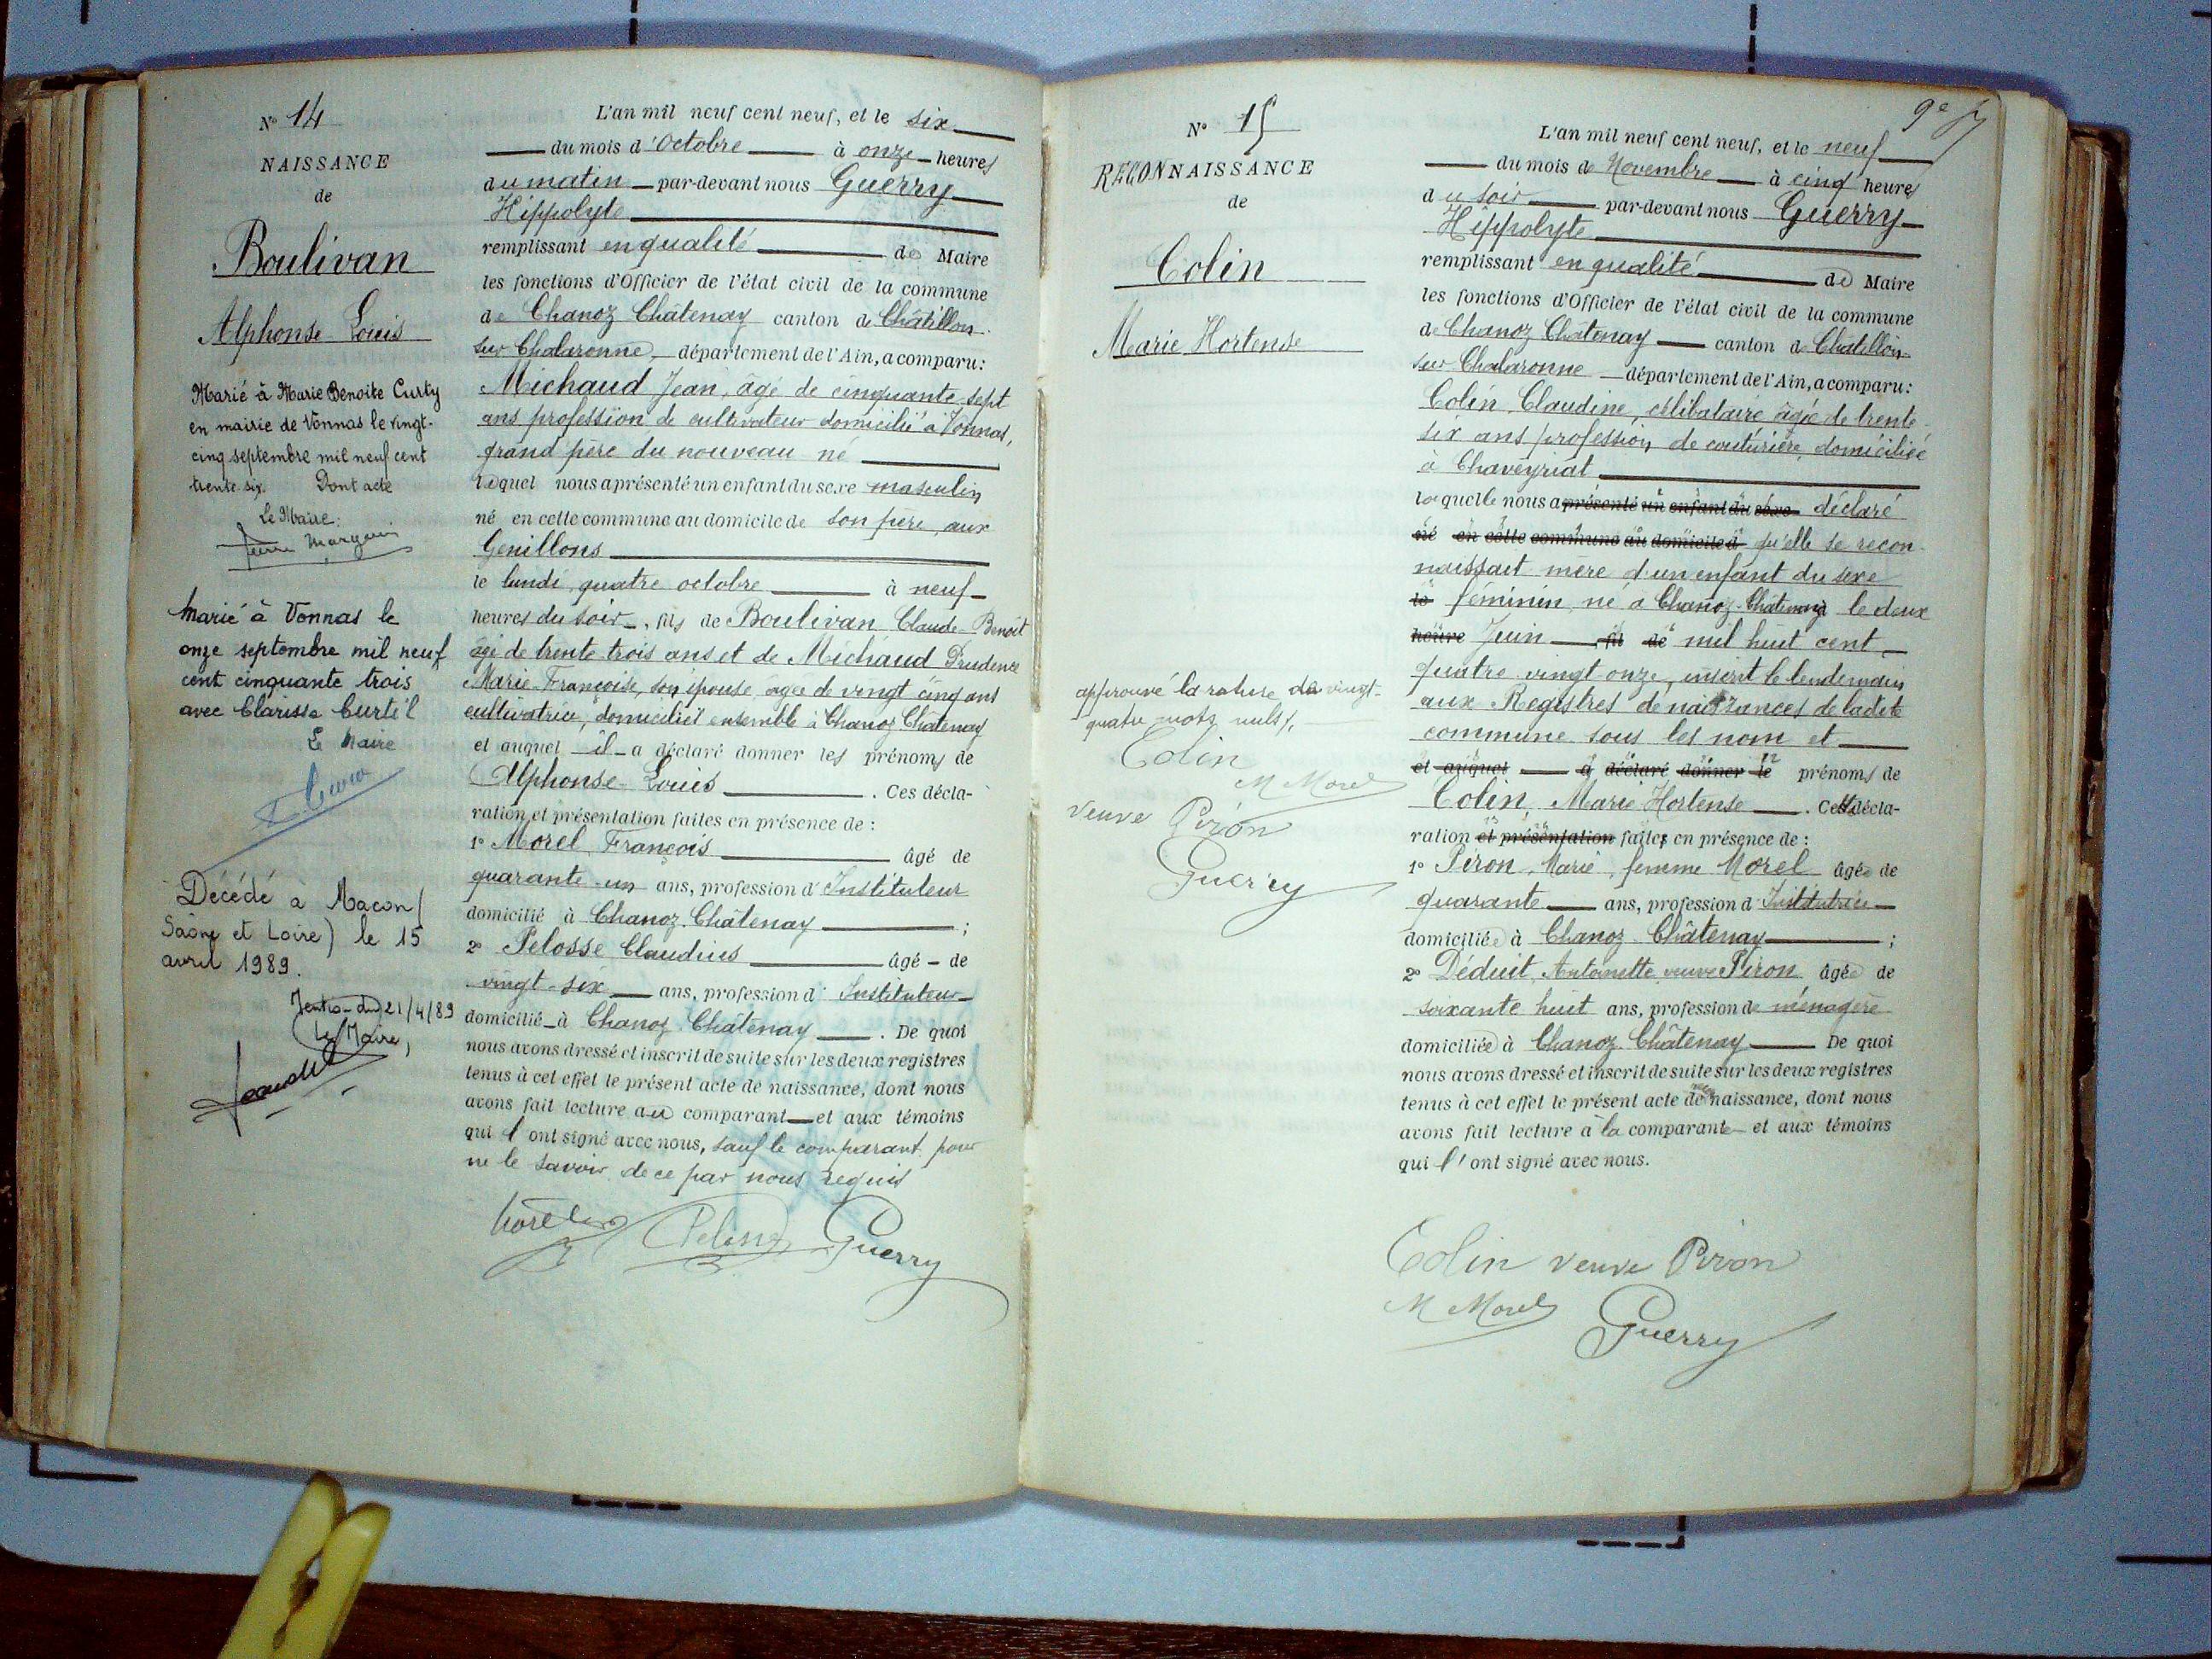 N° 14
NAISSANCE
de
Boulivan
Alphonse Louis
Marié à Marie Benoite Curty
en mairie de Vonnas le vingt-
cinq septembre mil neuf cent
trente six. Dont acte
Le Maire:
Marié à Vonnas le
onze septembre mil neuf
cent cinquante trois
avec Clarisse Curtil
Le Maire
Décédé à Macon (
Saône et Loire) le 15
avril 1989.
21/4/89
Le Maire,
L'an mil neuf cent neuf, et le six
du mois d'octobre à onze heures
du matin par-devant nous Guerry
Hippolyte
remplissant en qualité de Maire
les fonctions d'Officier de l'état civil de la commune
de Chanoz Châtenay canton de Châtillon
sur Chalaronne, département de l'Ain, a comparu:
Michaud Jean, âgé de cinquante-sept
ans profession de cultivateur domicilié à Vonnas,
grand père du nouveau né
lequel nous a présenté un enfant du sexe masculin
né en cette commune au domicile de son père, aux
Genillons
le lundi quatre octobre à neuf
heures du soir, fils de Boulivan Claude-Benoit
âgé de trente trois ans et de Michaud Prudence
Marie Françoise, son épouse âgée de vingt cinq ans
cultivatrice, domiciliés ensemble à Chanoz Châtenay
et auquel il a déclaré donner les prénoms de
Alphonse Louis. Ces décla-
ration et présentation faites en présence de:
1° Morel François âgé de
quarante-un ans, profession d'Instituteur
domicilié à Chanoz-Châtenay;
2° Pelosse Claudius âgé de
vingt-six ans, profession d'Instituteur
domicilié à Chanoz Châtenay. De quoi
nous avons dressé et inscrit de suite sur les deux registres
tenus à cet effet le présent acte de naissance, dont nous
avons fait lecture au comparant et aux témoins
qui l'ont signé avec nous, sauf le comparant pour
ne le savoir de ce par nous requis
Morel Guerry
N° 15
RECONNAISSANCE
de
Colin
Marie Hortense
approuvé la rature de vingt-
quatre mots nuls.
Colin
M Morel
veuve Piron
Guerry
L'an mil neuf cent neuf, et le neuf
du mois de Novembre à cinq heures
du soir par-devant nous Guerry
Hippolyte
remplissant en qualité de Maire
les fonctions d'Officier de l'état civil de la commune
de Chanoz Châtenay canton de Chatillon
sur Chalaronne département de l'Ain, a comparu:
Colin Claudine, célibataire âgée de trente
six ans profession de couturière, domiciliée
à Chaveyriat
laquelle nous a présenté un enfant du sexe déclaré
né en cette commune au domicile d qu'elle se recon-
naissait mère d'un enfant du sexe
le féminin né à Chanoz-Châtenay le deux
heure Juin fil de mil huit cent
quatre vingt onze, inscrit le lendemain
aux Registres de naissances de ladite
commune sous les nom et
et auquel a déclaré donner le prénoms de
Colin Marie Hortense. Cette décla-
ration et présentation faites en présence de:
1° Piron Marie, femme Morel âgée de
quarante ans, profession d'Institutrice
domiciliée à Chanoz-Châtenay;
2° Déduit Antoinette veuve Piron âgée de
soixante huit ans, profession de ménagère
domiciliée à Chanoz Châtenay De quoi
nous avons dressé et inscrit de suite sur les deux registres
tenus à cet effet le présent acte de naissance, dont nous
avons fait lecture à la comparante et aux témoins
qui l'ont signé avec nous.
Colin veuve Piron
M Morel Guerry